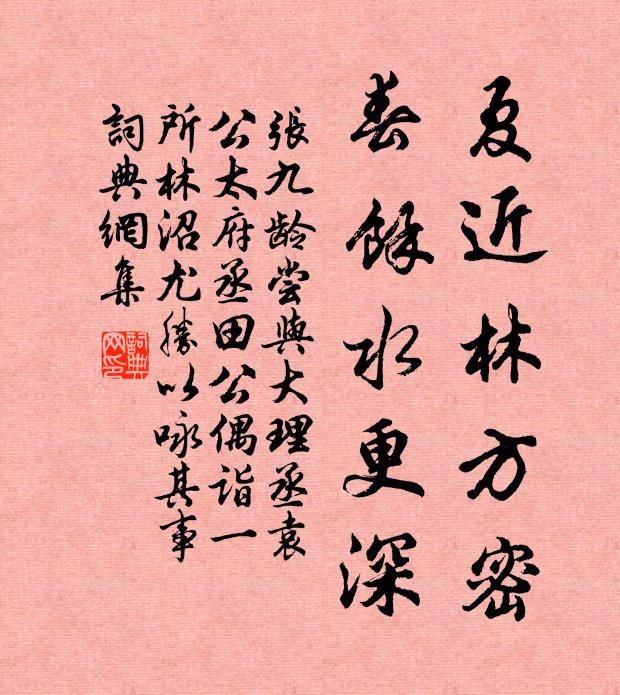 夏近林方密
春餘水更深
張九龄尝與大理丞袁
公太府丞田公偶诣一
所林沼尤勝以咏其事
詞典網集
詞典网印